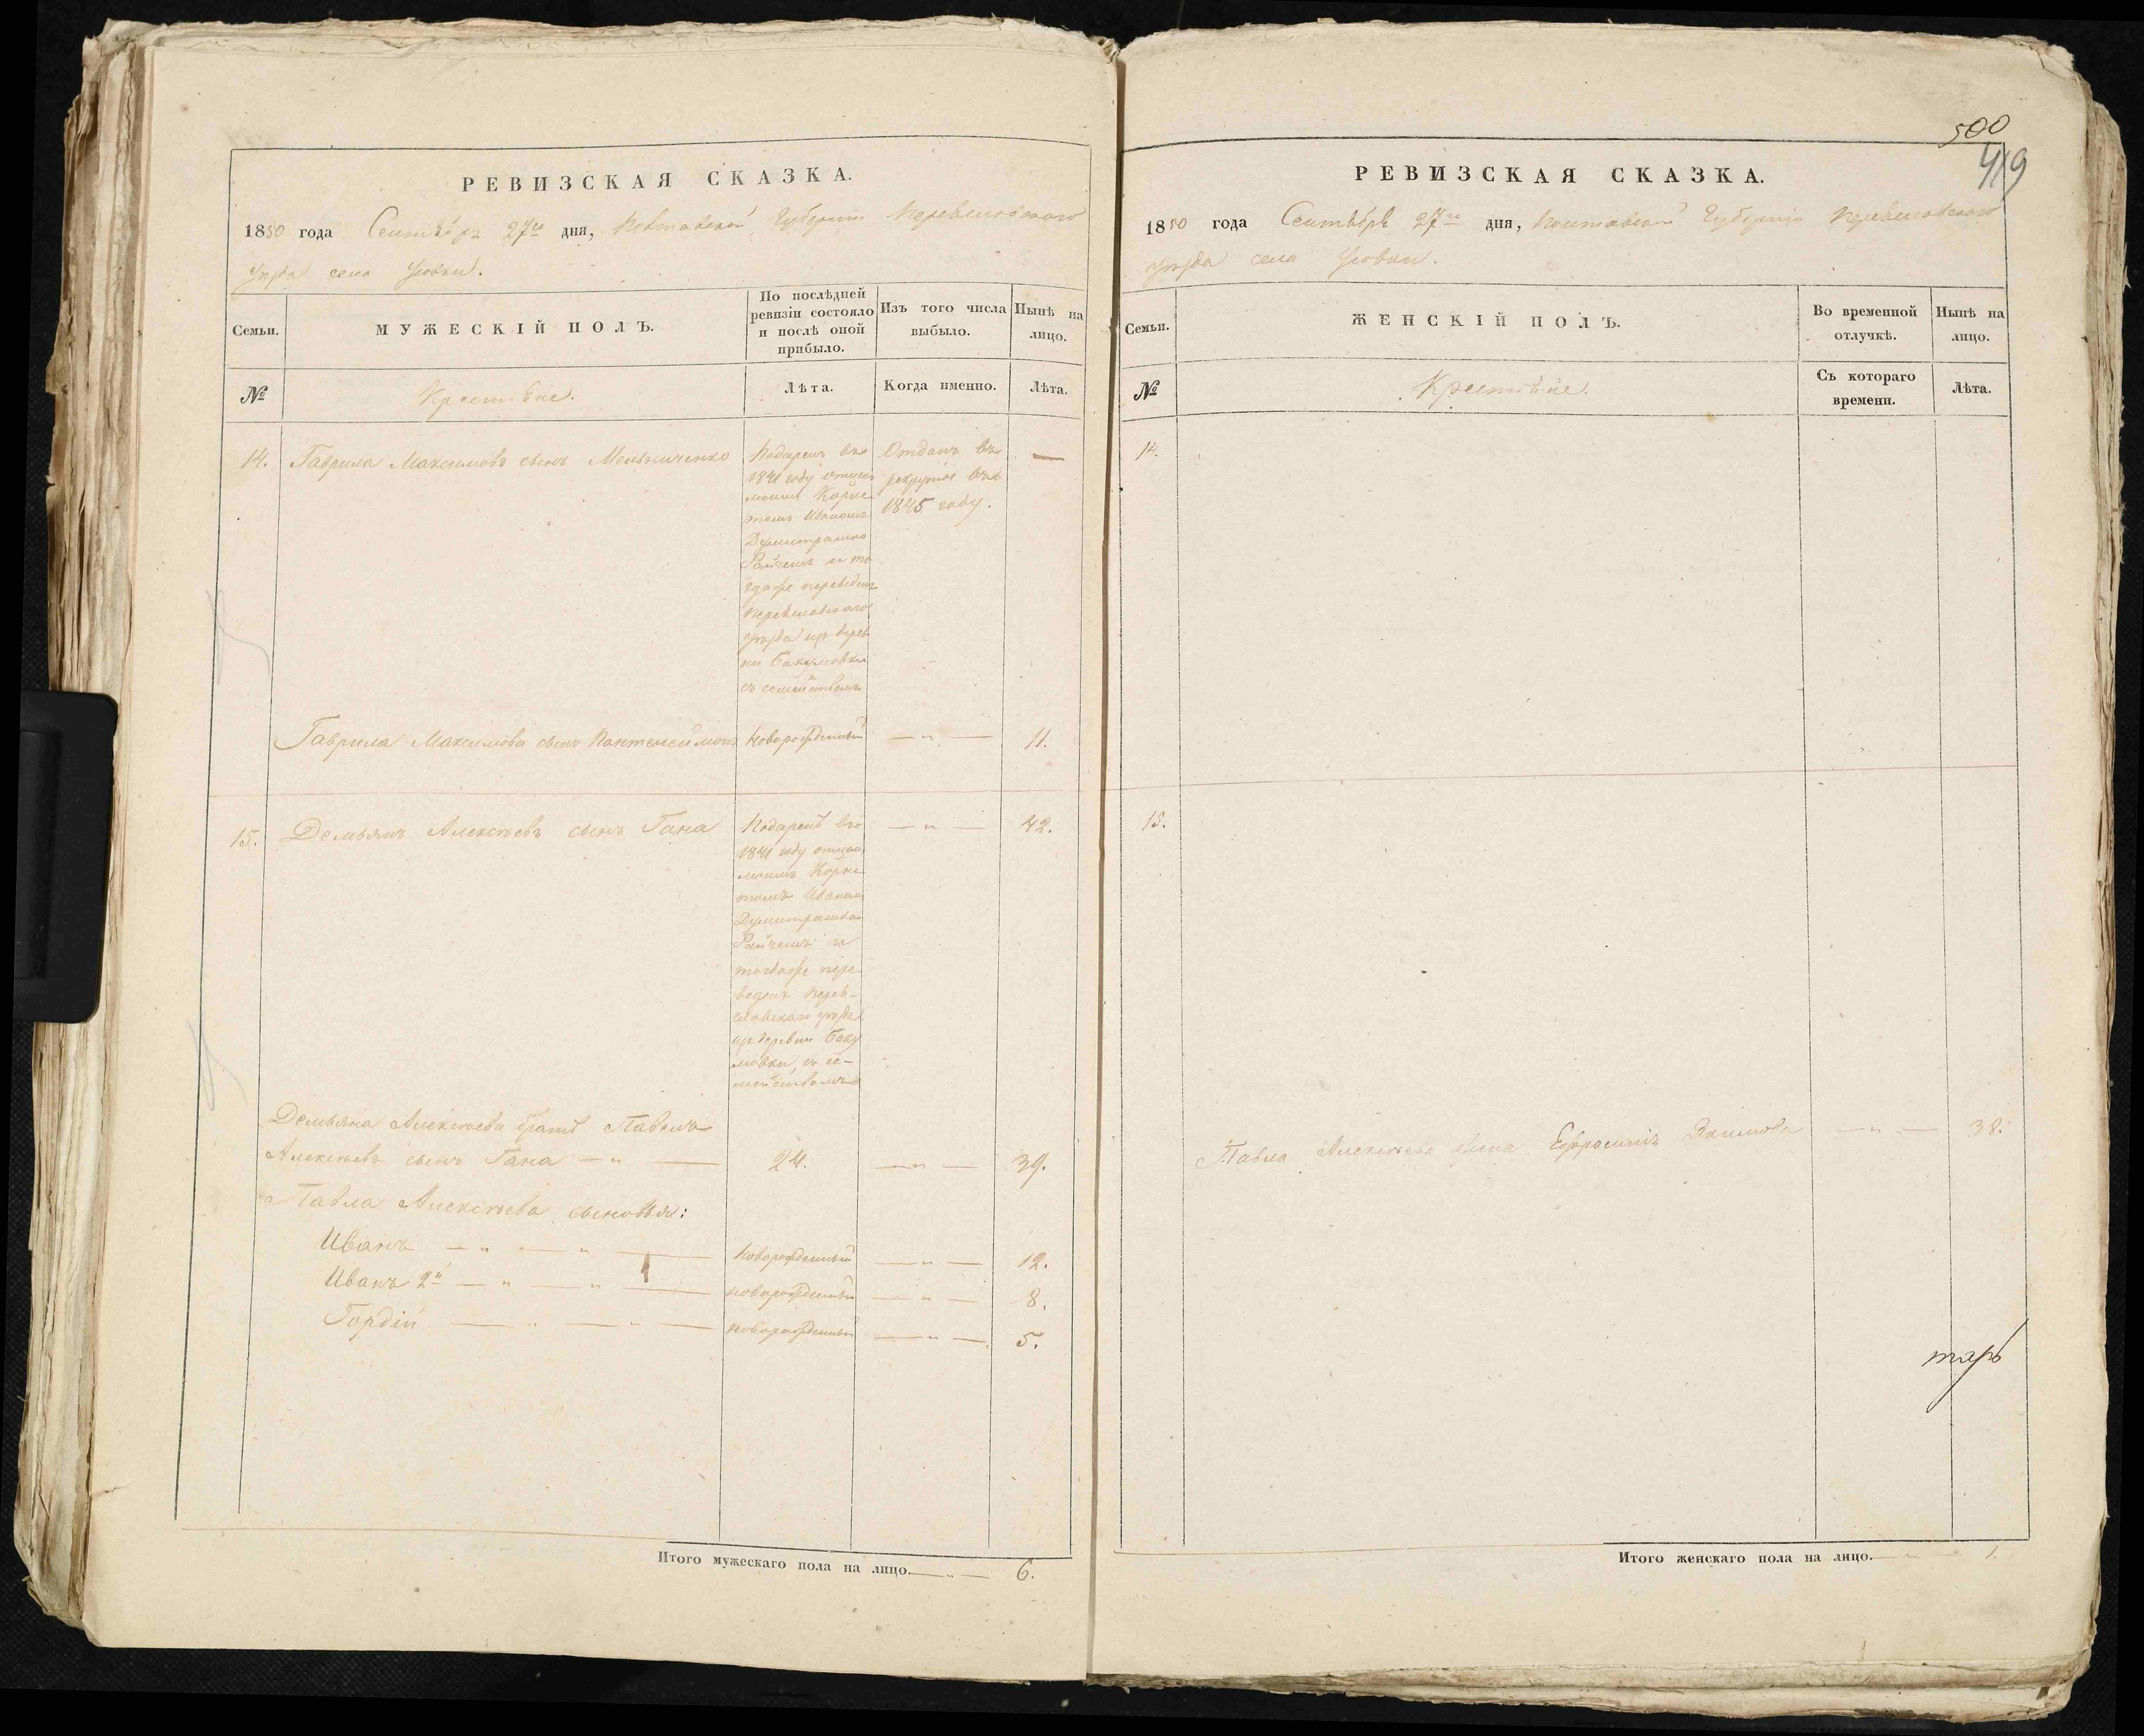 РЕВИЗСКАЯ СКАЗКА.
1850 года Сентября 27го дня, Полтавской Губерніи Переяславскаго
уѣзда села
Семьи.
МУЖЕСКІЙ ПОЛЪ.
По послѣдней
ревизіи состояло
и послѣ оной
прибыло.
Изъ того числа
выбыло.
Нынѣ на
лицо.
№
Крестьяне.
Лѣта.
Когда именно.
Лѣта.
14.
Гаврила Максимовъ сынъ Мельниченко
Подаренъ въ
1841 году отцемъ
моимъ Корне
томъ Иваномъ
Думитрашко
Райчемъ и то
гдаже переведенъ
Переяславскаго
уѣзда изъ дерев
ни Бакумовки
съ семействомъ
Отданъ въ
рекруты въ
1845 году.
—
Гаврила Максимова сынъ Пантелеймонъ
новорожденный
— " —
11.
15.
Демьянъ Алексѣевъ сынъ Гана
Подаренъ въ
1841 году отцемъ
моимъ Корне
томъ Иваномъ
Думитрашко
Райчемъ и
тогдаже пере
веденъ Перея-
славскаго уѣзда
изъ деревни Баку
мовки, съ се-
мействомъ
— " —
42.
Демьяна Алексѣева братъ Павелъ
Алексѣевъ сынъ Гана — " —
24.
— " —
39.
Павла Алексѣева сыновья:
Иванъ — " — " —
новорожденный
— " —
12.
Иванъ 2й — " — " —
новорожденный
— " —
8.
Гордій — " — " —
новорожденный
— " —
5.
Итого мужескаго пола на лицо. — " — 6.
500
419
РЕВИЗСКАЯ СКАЗКА.
1850 года Сентября 27го дня, Полтавской Губерніи Переяславскаго
уѣзда села
Семьи.
ЖЕНСКІЙ ПОЛЪ.
Во временной
отлучкѣ.
Нынѣ на
лицо.
№
Крестьяне.
Съ котораго
времени.
Лѣта.
14.
15.
Павла Алексѣева жена Ефросинія Якимова
— " —
38.
Итого женскаго пола на лицо. — " — 1.